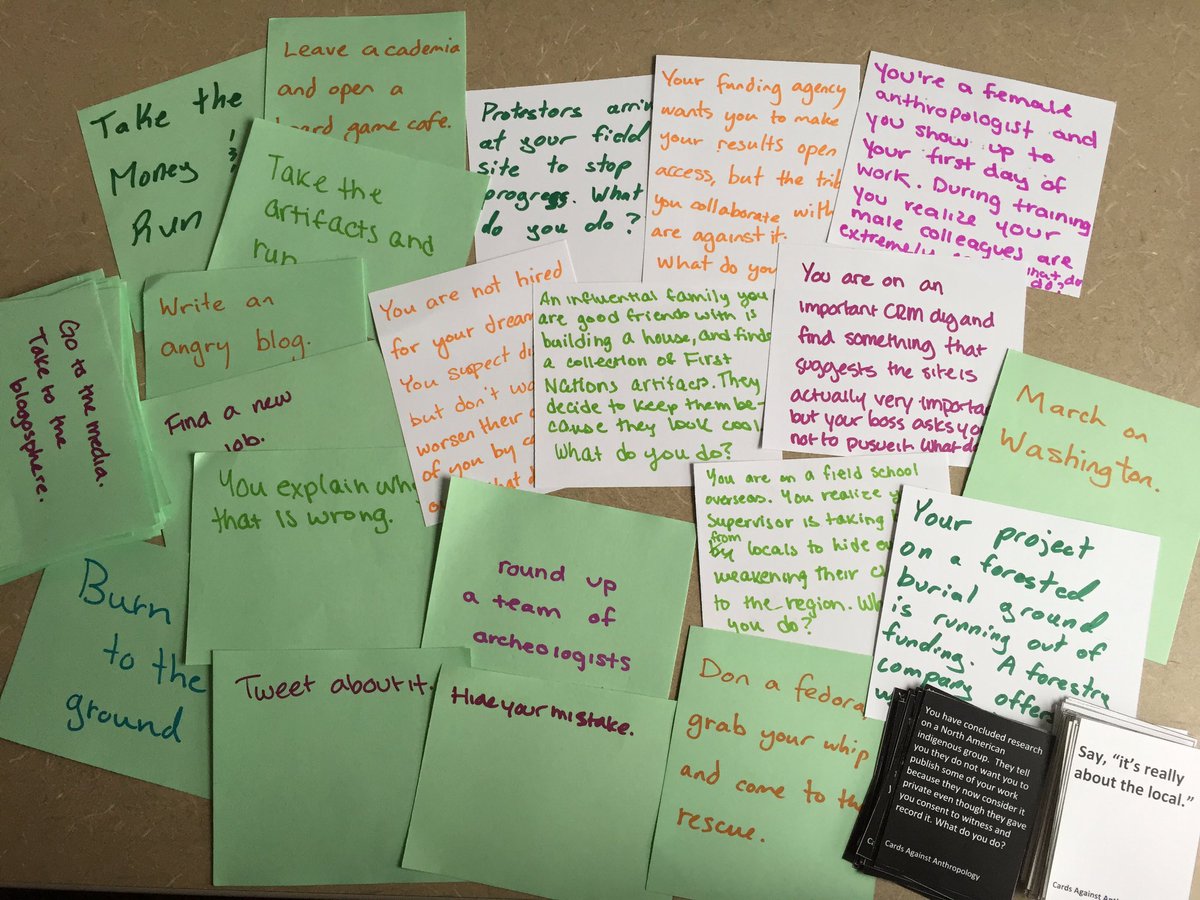 Take the
Money &
Run
Leave academia
and open a
board game cafe.
Take the
artifacts and
run
Protestors
at your field
site to stop
progress. What
do you do?
Your funding agency
wants you to make
your results open
access, but the
you collaborate with
are against it.
What do you
You're a female
anthropologist and
you show up to
your first day of
work. During training
you realize your
male colleagues are
extremely
do?
Write an
angry blog.
Go to the media.
Take to the
blogosphere.
Find a new
job.
You are not hired
for your dream
You suspect
but don't
worsen their
of you by
An influential family you
are good friends with is
building a house, and finds
a collection of First
Nations artifacs. They
decide to keep them be-
cause they look cool
What do you do?
You are on an
important CRM dig and
find something that
suggests the site is
actually very important
but your boss asks you
not to pusueit. What do
March on
Washington.
You explain why
that is wrong.
round up
a team of
archeologists
You are on a field school
overseas. You realize
Supervisor is taking
from
by locals to hide
weakening their
to the region.
you do?
Your project
on a forested
burial ground
is running out of
funding. A forestry
company offers
Burn
to the
ground
Tweet about it.
Hide your mistake.
Don a fedora
grab your whip
and come to the
rescue.
You have concluded research
on a North American
indigenous group. They tell
you they do not want you to
publish some of your work
because they now consider it
private even though they gave
you consent to witness and
record it. What do you do?
Cards Against Anthropology
Say, "it's really
about the local."
Cards Against Anthropology